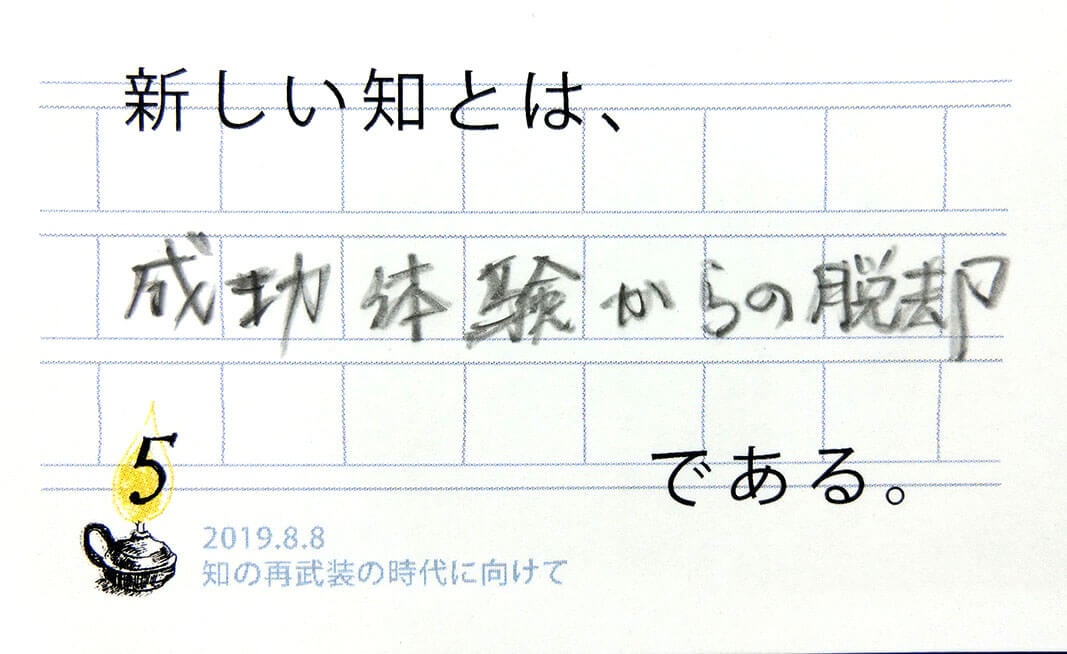 新しい知とは、
成功体験からの脱却
である。
5
2019.8.8
知の再武装の時代に向けて